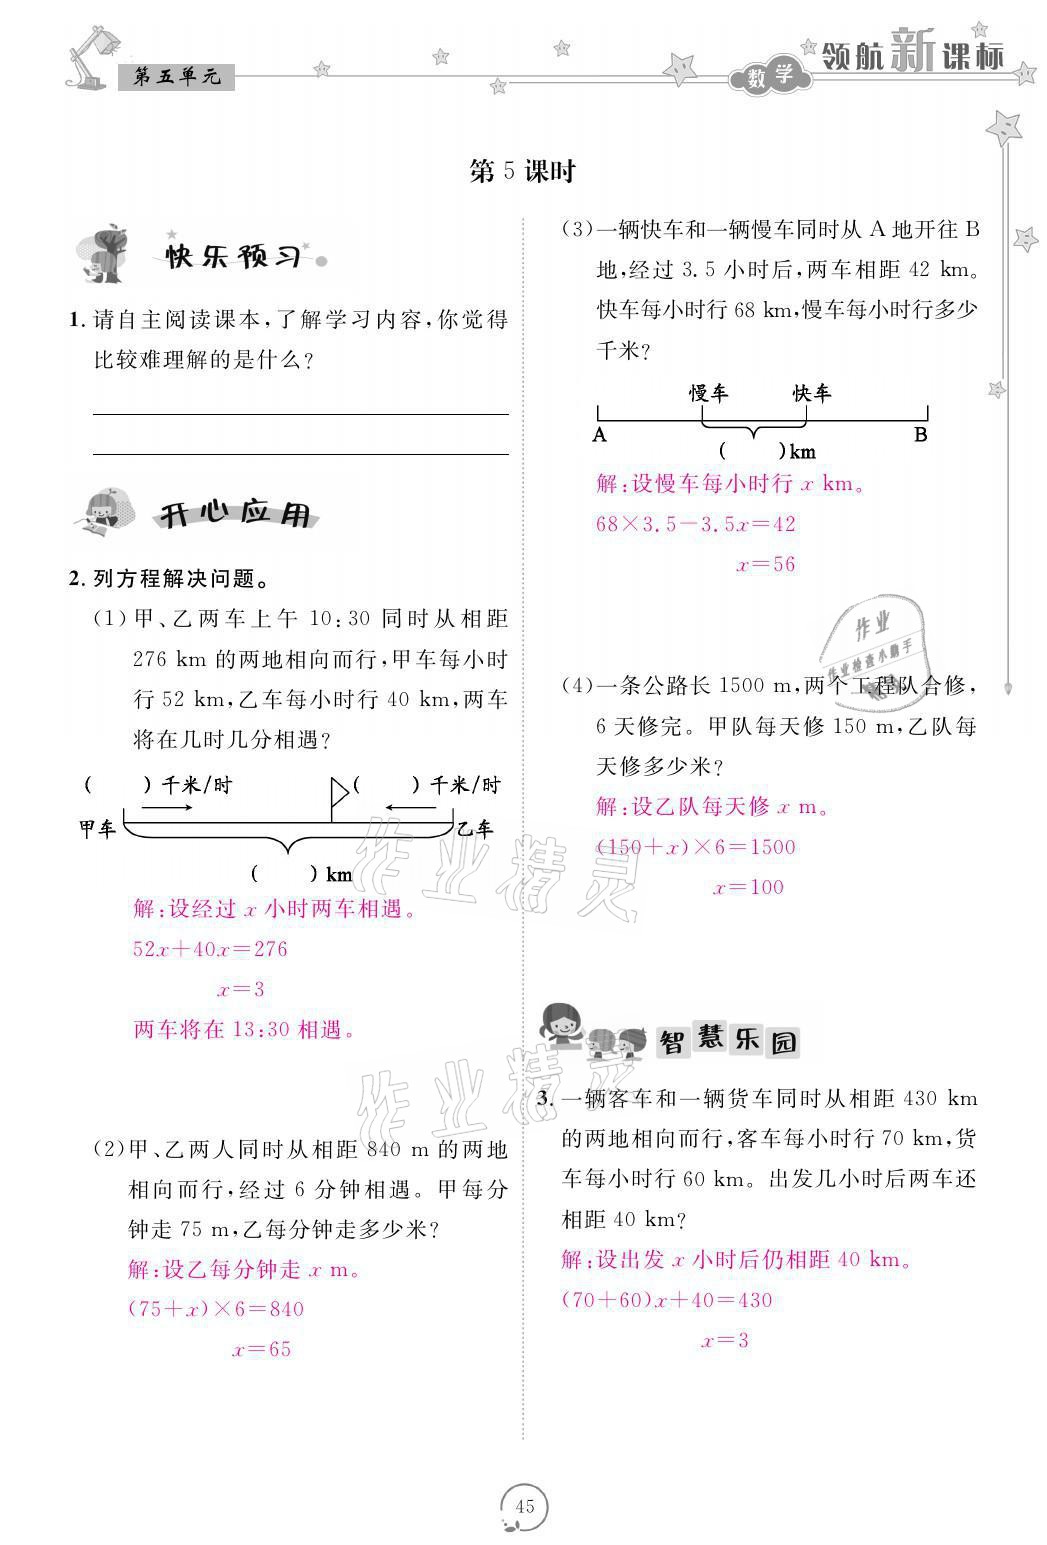 第五单元
数学
领航新课标
第 5 课时
快乐预习
1. 请自主阅读课本,了解学习内容,你觉得
比较难理解的是什么?
开心应用
2. 列方程解决问题。
(1) 甲、乙两车上午 10:30 同时从相距
276 km 的两地相向而行,甲车每小时
行 52 km,乙车每小时行 40 km,两车
将在几时几分相遇?
(    )千米/时 (    )千米/时
甲车 乙车
(    ) km
解:设经过 x 小时两车相遇。
52x+40x=276
x=3
两车将在 13:30 相遇。
(2) 甲、乙两人同时从相距 840 m 的两地
相向而行,经过 6 分钟相遇。甲每分
钟走 75 m,乙每分钟走多少米?
解:设乙每分钟走 x m。
(75+x)×6=840
x=65
(3) 一辆快车和一辆慢车同时从 A 地开往 B
地,经过 3.5 小时后,两车相距 42 km。
快车每小时行 68 km,慢车每小时行多少
千米?
慢车 快车
A B
(    )km
解:设慢车每小时行 x km。
68×3.5-3.5x=42
x=56
作业
作业检查小助手
(4) 一条公路长 1500 m,两个工程队合修,
6 天修完。甲队每天修 150 m,乙队每
天修多少米?
解:设乙队每天修 x m。
(150+x)×6=1500
x=100
作业精灵
智慧乐园
作业精灵
3. 一辆客车和一辆货车同时从相距 430 km
的两地相向而行,客车每小时行 70 km,货
车每小时行 60 km。出发几小时后两车还
相距 40 km?
解:设出发 x 小时后仍相距 40 km。
(70+60)x+40=430
x=3
45